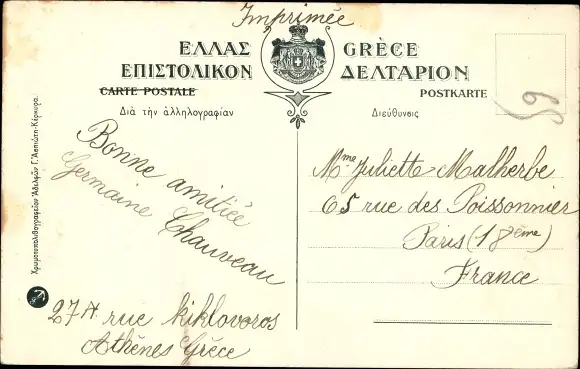 Imprimée
ΕΛΛΑΣ GRÈCE
ΕΠΙΣΤΟΛΙΚΟΝ ΔΕΛΤΑΡΙΟΝ
CARTE POSTALE POSTKARTE
Διὰ τὴν ἀλληλογραφίαν
Διεύθυνσις
59
Bonne amitiée
Germaine Chauveau
27A rue Kiklovoros
Athènes Grèce
Mme Juliette Malherbe
65 rue des Poissonnier
Paris (18ème)
France
Χρωμοτυπολιθογραφεῖον Ἀδελφῶν Γ. Ἀσπιώτη-Κέρκυρα.